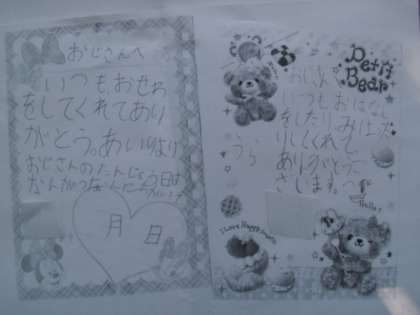 おじさんへ
いつも、おせわ
をしてくれてあり
がとう。あいりより
おじさんのたんじょう日は
なんがつなんにち
月 日
Petit
Bear
おじさん
いつもおはなし
をしたり、みはっ
うら
りしてくれて
ありがとうご
ざいます。
Hello!